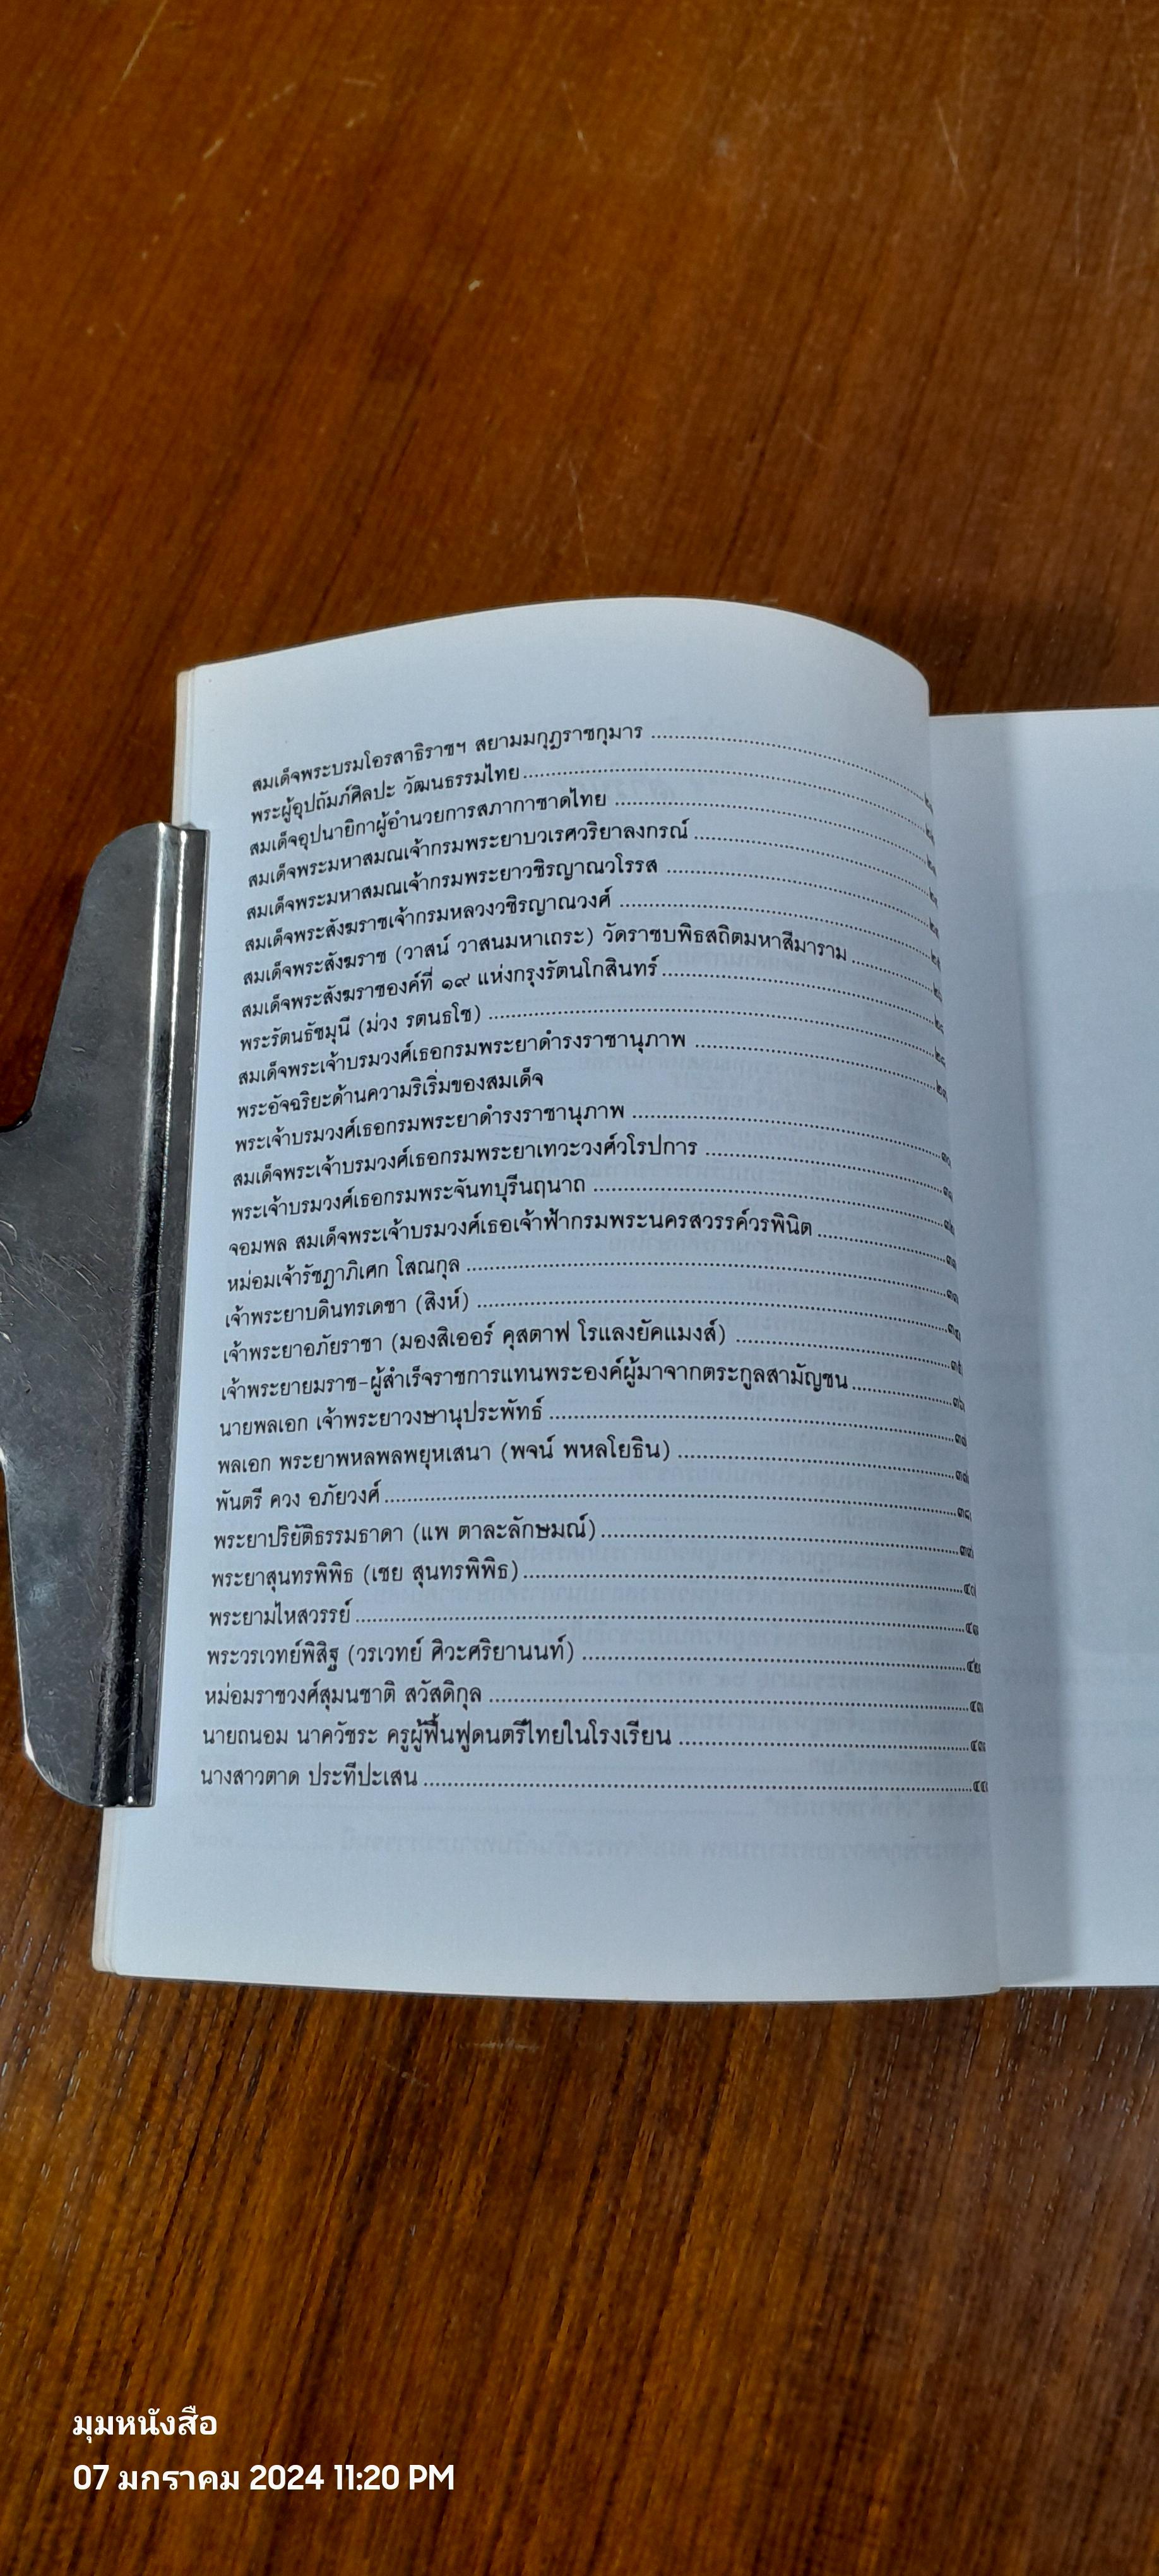 สมเด็จพระบรมโอรสาธิราชฯ สยามมกุฎราชกุมาร
พระผู้อุปถัมภ์ศิลปะ วัฒนธรรมไทย
สมเด็จอุปนายิกาผู้อำนวยการสภากาชาดไทย
สมเด็จพระมหาสมณเจ้ากรมพระยาบวเรศวริยาลงกรณ์
สมเด็จพระมหาสมณเจ้ากรมพระยาวชิรญาณวโรรส
สมเด็จพระสังฆราชเจ้ากรมหลวงวชิรญาณวงศ์
สมเด็จพระสังฆราช (วาสน์ วาสนมหาเถระ) วัดราชบพิธสถิตมหาสีมาราม
สมเด็จพระสังฆราชองค์ที่ ๑๙ แห่งกรุงรัตนโกสินทร์
พระรัตนธัชมุนี (ม่วง รตนธโช)
สมเด็จพระเจ้าบรมวงศ์เธอกรมพระยาดำรงราชานุภาพ
พระอัจฉริยะด้านความริเริ่มของสมเด็จ
พระเจ้าบรมวงศ์เธอกรมพระยาดำรงราชานุภาพ
สมเด็จพระเจ้าบรมวงศ์เธอกรมพระยาเทวะวงศ์วโรปการ
พระเจ้าบรมวงศ์เธอกรมพระจันทบุรีนฤนาถ
จอมพล สมเด็จพระเจ้าบรมวงศ์เธอเจ้าฟ้ากรมพระนครสวรรค์วรพินิต
หม่อมเจ้ารัชฎาภิเศก โสณกุล
เจ้าพระยาบดินทรเดชา (สิงห์)
เจ้าพระยาอภัยราชา (มองสิเออร์ คุสตาฟ โรแลงยัคแมงส์)
เจ้าพระยายมราช-ผู้สำเร็จราชการแทนพระองค์ผู้มาจากตระกูลสามัญชน
นายพลเอก เจ้าพระยาวงษานุประพัทธ์
พลเอก พระยาพหลพลพยุหเสนา (พจน์ พหลโยธิน)
พันตรี ควง อภัยวงศ์
พระยาปริยัติธรรมธาดา (แพ ตาละลักษมณ์)
พระยาสุนทรพิพิธ (เชย สุนทรพิพิธ)
พระยามไหสวรรย์
พระวรเวทย์พิสิฐ (วรเวทย์ ศิวะศริยานนท์)
หม่อมราชวงศ์สุมนชาติ สวัสดิกุล
นายถนอม นาควัชระ ครูผู้ฟื้นฟูดนตรีไทยในโรงเรียน
นางสาวตาด ประทีปะเสน
มุมหนังสือ
07 มกราคม 2024 11:20 PM